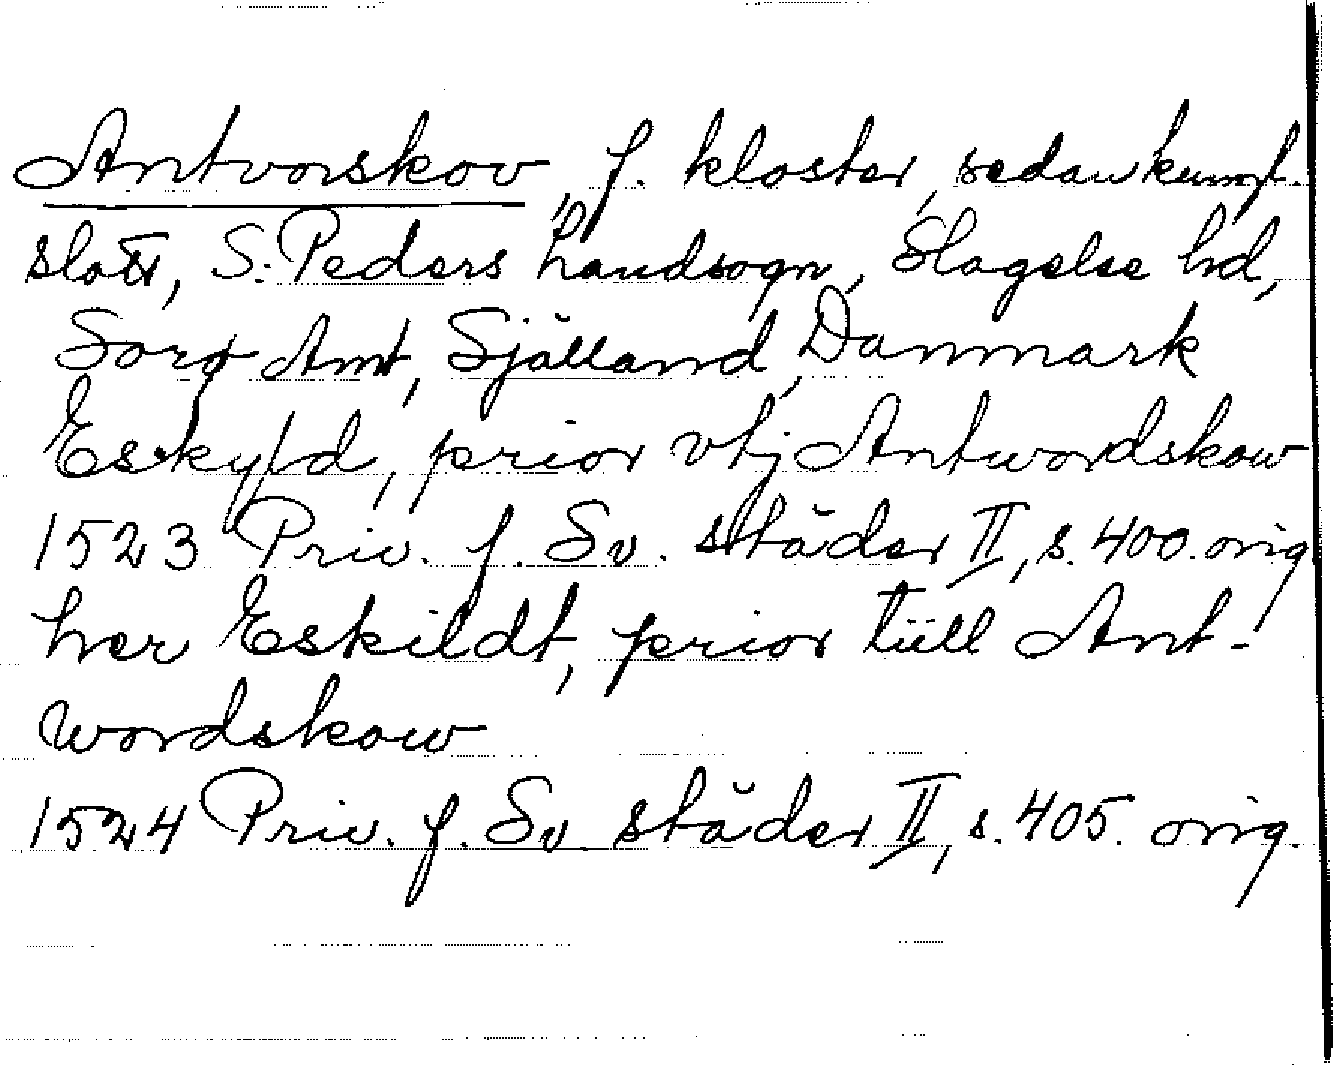 Antvorskov, f. kloster, sedan kungl.
slott, S. Peders Landsogn, Slagelse hd,
Sorø Amt, Själland, Danmark
Eskyld, prior vtj Antwordskow
1523 Priv. f. Sv. städer II, s. 400. orig
her Eskildt, prior tiill Ant-
wordskow
1524 Priv. f. Sv. städer II, s. 405. orig.